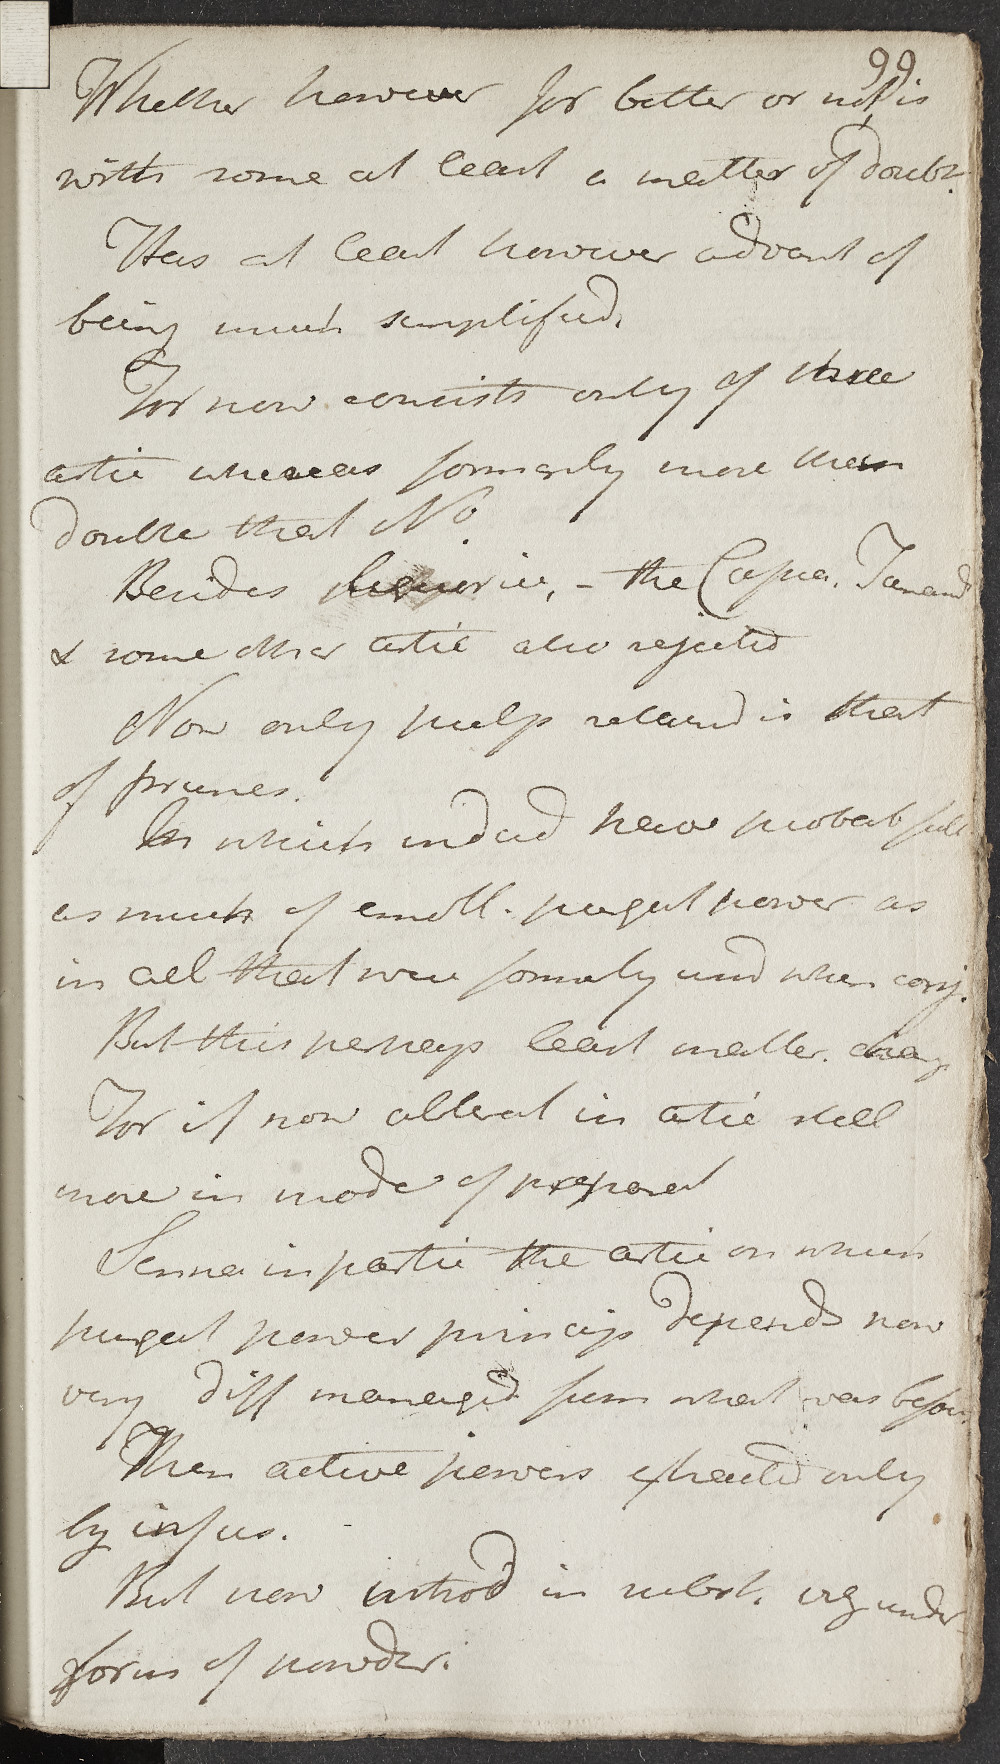 99
Whether however for better or not is
with some at least a matter of doubt.
Has at least however advant of
being much simplified.
For now consists only of three
artic whereas formerly more than
double that No.
Besides liquorice, - the Cassia. Tamarind
& some other artic also rejected
Now only pulp retaind is that
of prunes.
In which indeed have probab full
as much of emoll. purgat power as
in all that were formerly used when conj.
But this perhaps least matter. chang
For if now alterat in artic still
more in mode of preparat
Senna in partic the artic on which
purgat power princip depends now
very diff managed from what was before.
Then active powers extracted only
by infus.
But now introd in subst. viz under
form of powder.